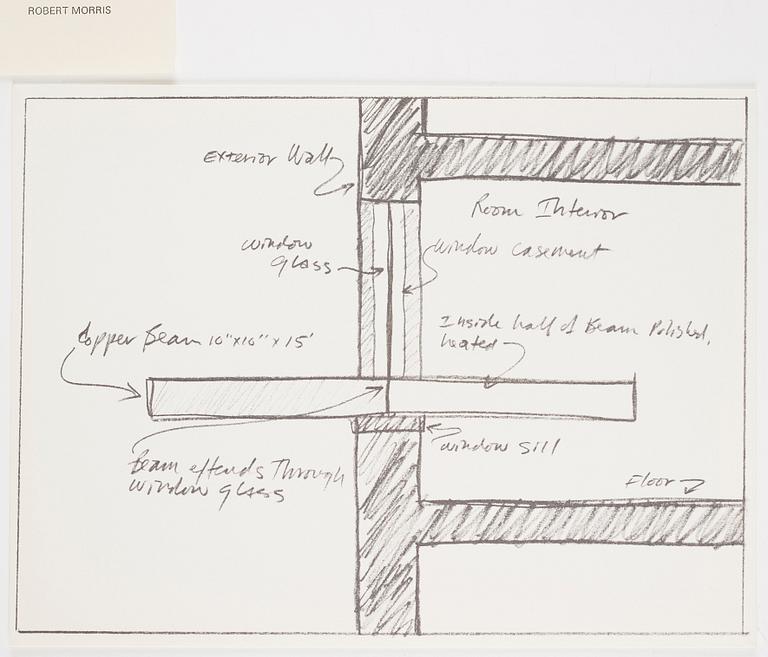 ROBERT MORRIS
Exterior Wall
Room Interior
window
glass
window casement
Inside half of Beam Polished,
heated
Copper Beam 10"x10" x 15'
window sill
Beam extends Through
window glass
Floor